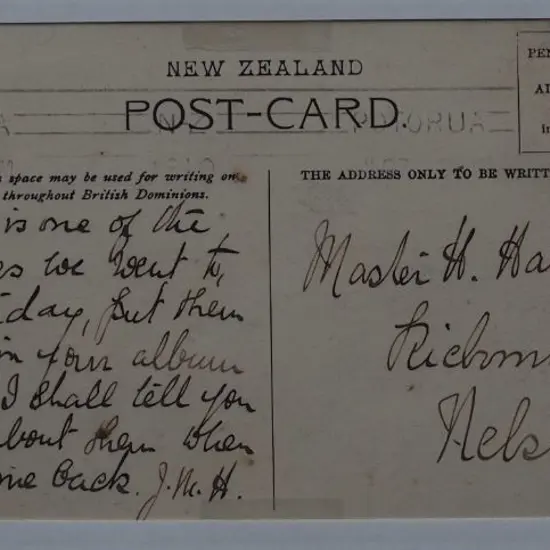 NEW ZEALAND
POST-CARD.
space may be used for writing on
throughout British Dominions.
is one of the
es we went to,
day, put them
in your album
I shall tell you
about them when
back. J.M.H.
PEN
AD
in
THE ADDRESS ONLY TO BE WRITT
Master H. Ha
Richm
Nels